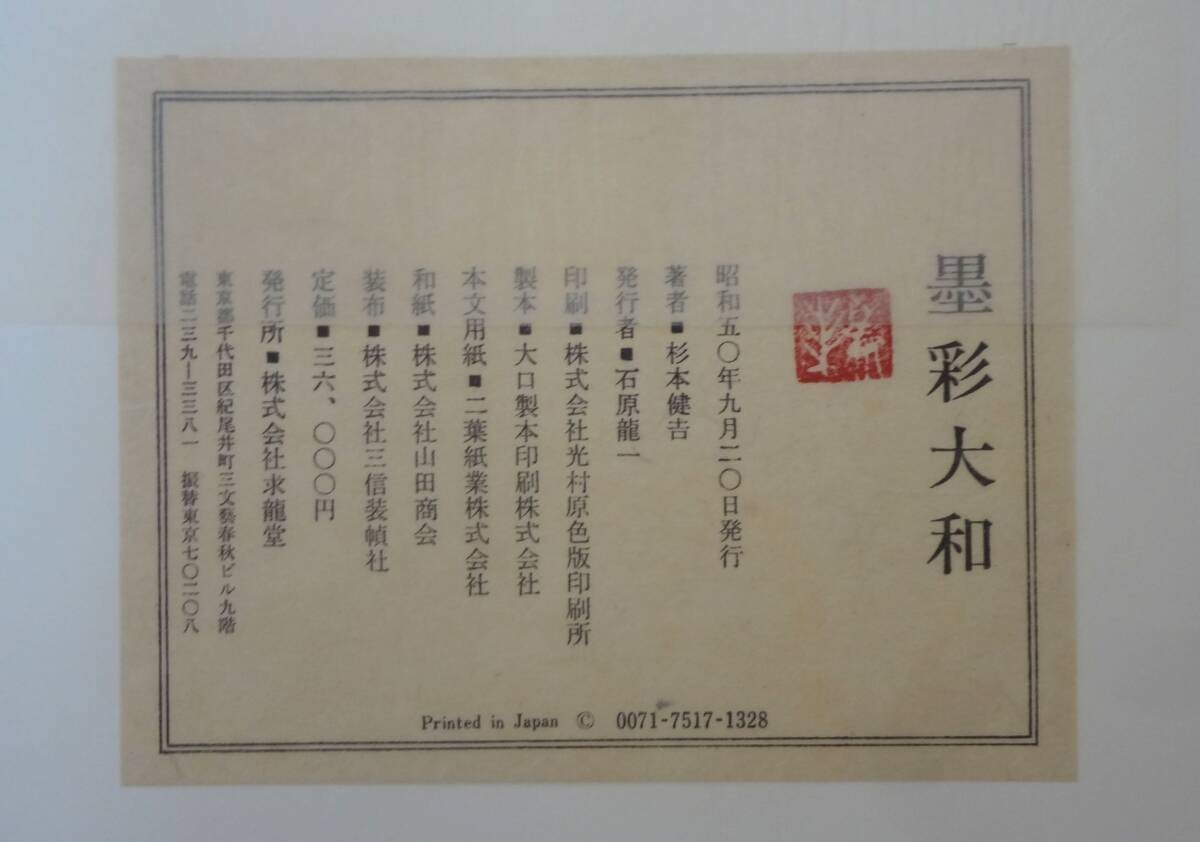 墨彩大和
昭和五〇年九月二〇日発行
著者■杉本健吉
発行者■石原龍一
印刷■株式会社光村原色版印刷所
製本■大口製本印刷株式会社
本文用紙■二葉紙業株式会社
和紙■株式会社山田商会
装布■株式会社三信装幀社
定価■三六、〇〇〇円
発行所■株式会社求龍堂
東京都千代田区紀尾井町三文藝春秋ビル九階
電話二三九―三三八一 振替東京七〇二〇八
Printed in Japan © 0071-7517-1328